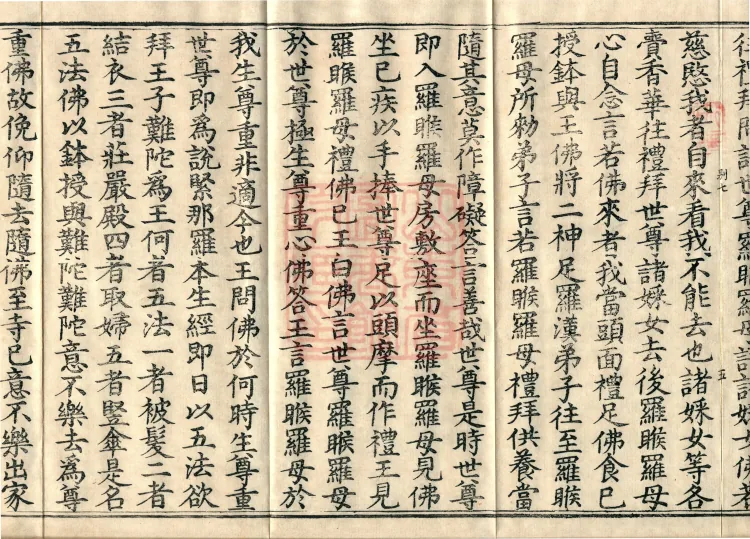 禮拜問訊世尊羅睺羅母語諸婇女
慈愍我者自來看我不能去也諸婇女等各
五
賷香華往禮拜世尊諸婇女去後羅睺羅母
心自念言若佛來者我當頭面禮足佛食已
授鉢與王佛將二神足羅漢弟子往至羅睺
羅母所勑弟子言若羅睺羅母禮拜供養當
隨其意莫作障礙答言善哉世尊是時世尊
即入羅睺羅母房敷座而坐羅睺羅母見佛
坐已疾以手捧世尊足以頭摩而作禮王見
羅睺羅母禮佛已王白佛言世尊羅睺羅母
於世尊極生尊重心佛答王言羅睺羅母於
我生尊重非適今也王問佛於何時生尊重
世尊即爲說緊那羅本生經即日以五法欲
拜王子難陀爲王何者五法一者被髮二者
結衣三者莊嚴殿四者取婦五者竪傘是名
五法佛以鉢授與難陀難陀意不樂去爲尊
重佛故俛仰隨去隨佛至寺已意不樂出家